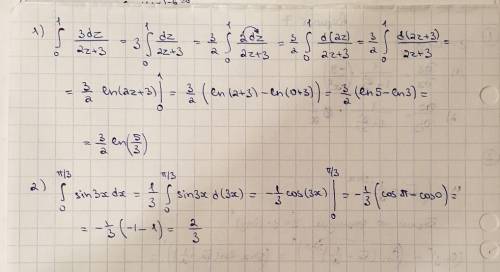 1) ∫₀¹ 3dz/(2z+3) = 3∫₀¹ dz/(2z+3) = 3/2 ∫₀¹ 2dz/(2z+3) = 3/2 ∫₀¹ d(2z)/(2z+3) = 3/2 ∫₀¹ d(2z+3)/(2z+3) =
= 3/2 ln(2z+3)|₀¹ = 3/2 (ln(2+3) - ln(0+3)) = 3/2 (ln5 - ln3) =
= 3/2 ln(5/3)
2) ∫₀^(π/3) sin3x dx = 1/3 ∫₀^(π/3) sin3x d(3x) = -1/3 cos(3x)|₀^(π/3) = -1/3 (cos π - cos0) =
= -1/3 (-1-1) = 2/3